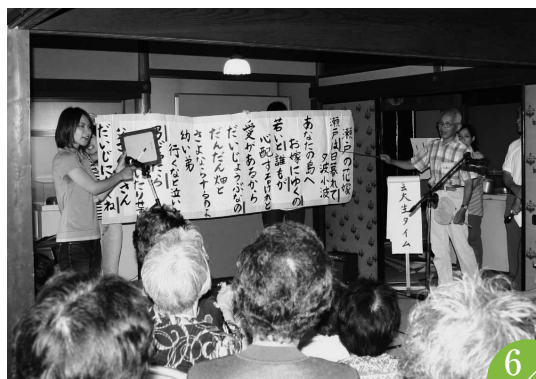 瀬戸の花嫁
瀬戸は日暮れて
夕波小波
あなたの島へ
お嫁にゆくの
若いと誰もが
心配するけれど
愛があるから
だいじょうぶなの
だんだん畑と
さよならするのよ
幼い弟
行くなと泣い
さん
だいじに
ね
大生タイム
6